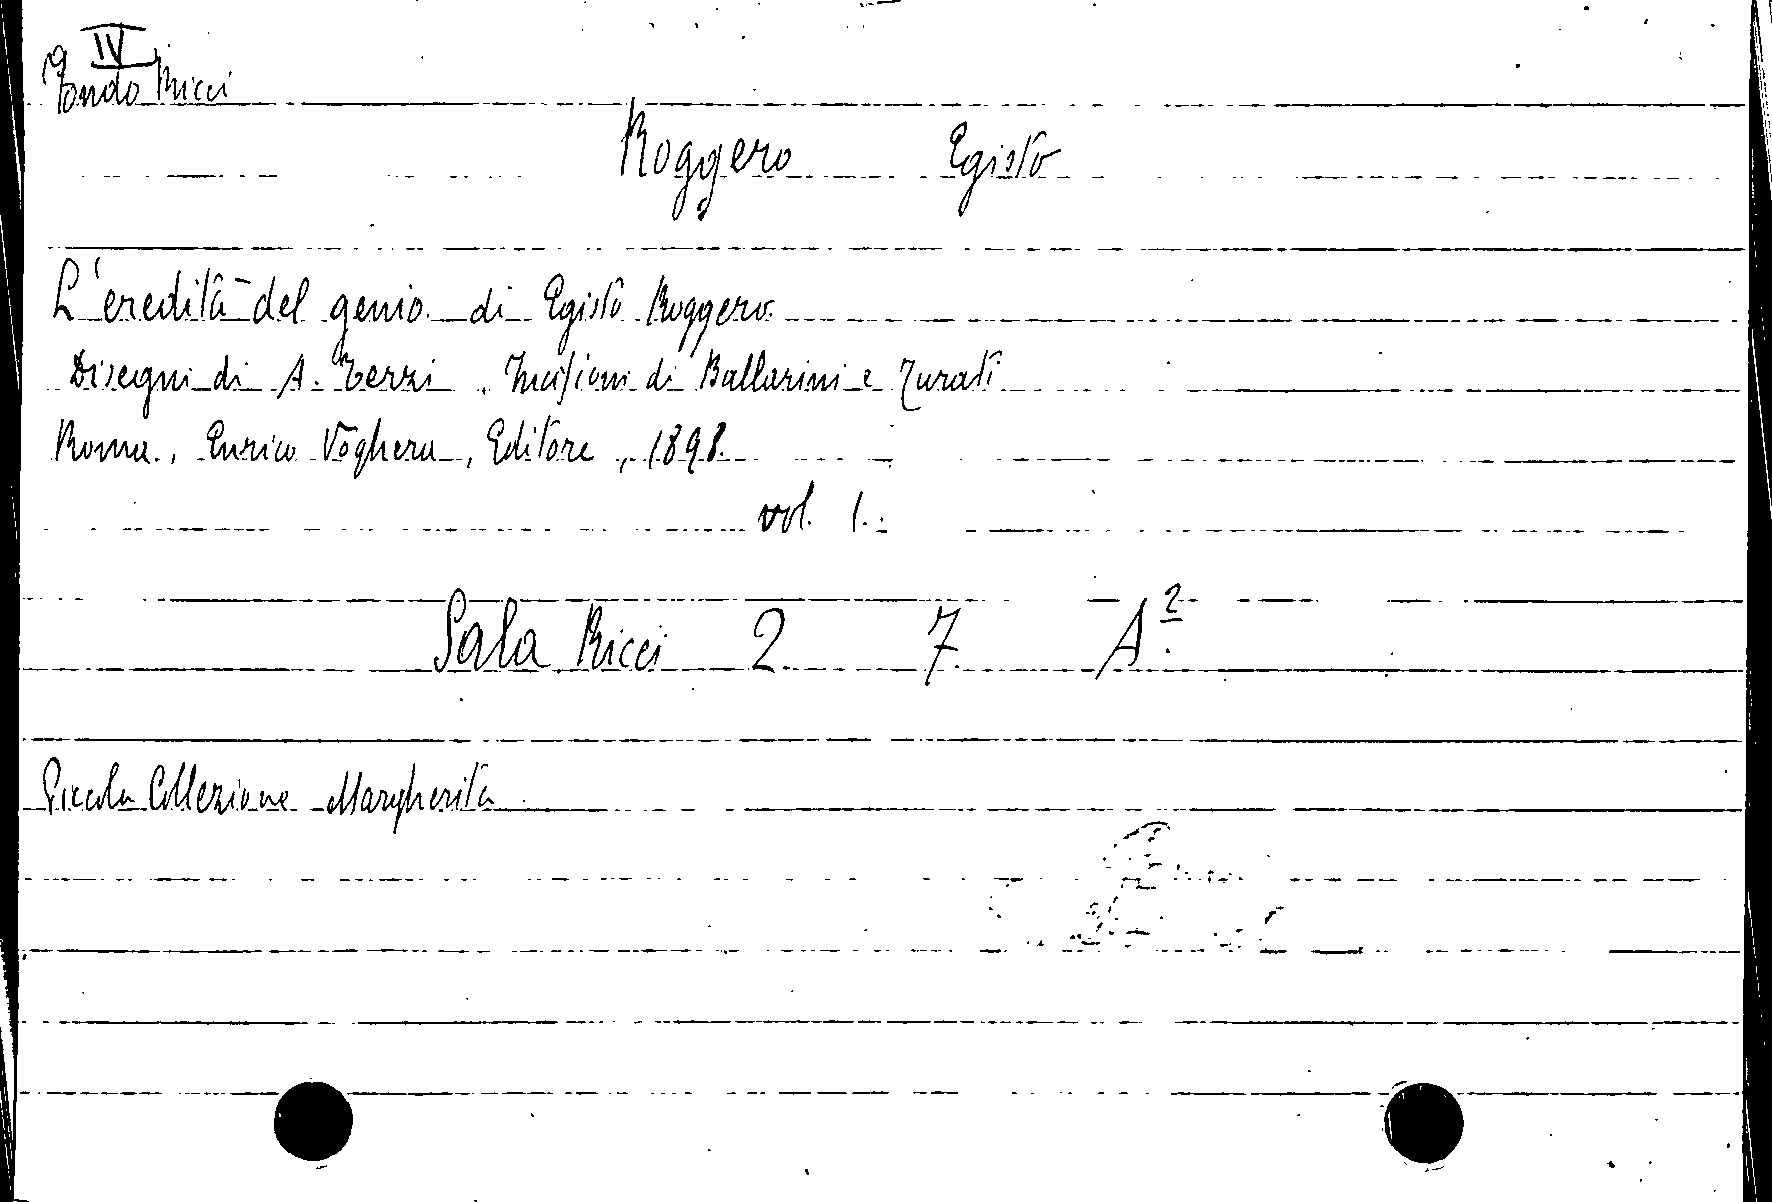 IV
Fondo Ricci
Roggero Egisto
L'eredità del genio. di Egisto Roggero.
Disegni di A. Terzi. Incisioni di Ballarini e Turati
Roma., Enrico Voghera, Editore, 1898.
vol. 1.
Sala Ricci 2 7 A²
Piccola Collezione Margherita